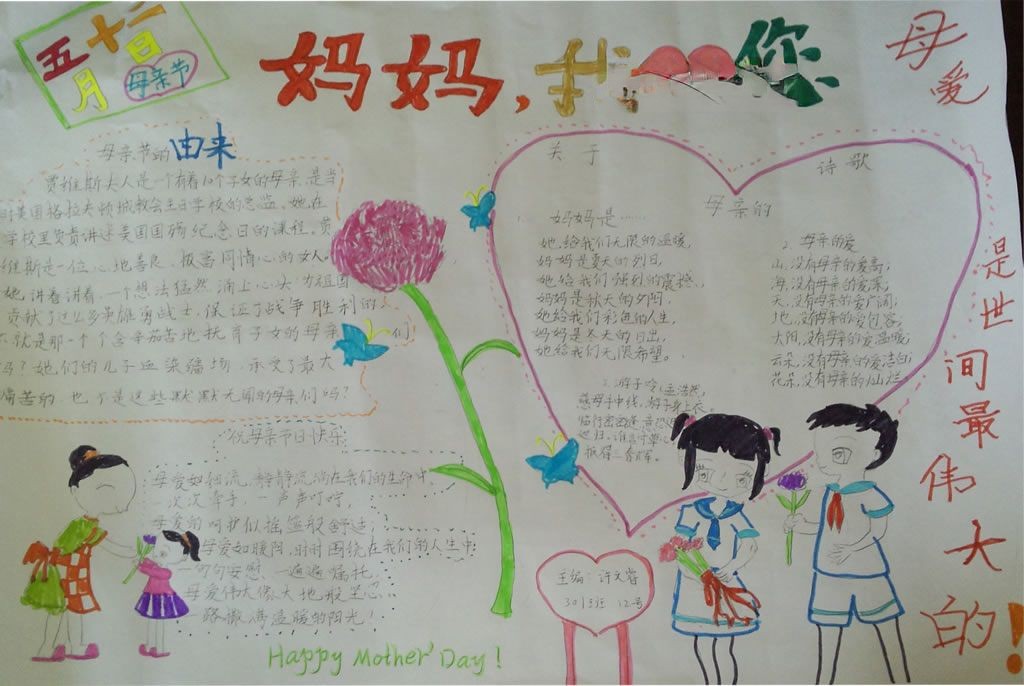 五月十二日
母亲节
妈妈，我 您
母爱
是世间最伟大的！
母亲节的由来
贾维斯夫人是一个有着10个子女的母亲，是当
时美国格拉夫顿城教会主日学校的总监。她在
学校里负责讲述美国国殇纪念日的课程。贾
维斯是一位心地善良、极富同情心的女人。
她讲着讲着，一个想法猛然涌上心头：为祖国
贡献了这么多英雄勇战士，保证了战争胜利的，
不就是那一个个含辛茹苦地抚育子女的母亲们
吗？她们的儿子血染疆场，承受了最大
痛苦的，也不是这些默默无闻的母亲们吗？
祝母亲节日快乐
母爱如细流，静静流淌在我们的生命中
次次牵手，一声声叮咛，
母爱的呵护似摇篮般舒适；
母爱如暖阳，时时围绕在我们的人生中
一句句安慰，一遍遍嘱托，
母爱伟大像大地般坚心，
一路撒满温暖的阳光！
Happy Mother' Day !
关于
母亲的
诗歌
妈妈是……
她给我们无限的温暖，
妈妈是夏天的烈日，
她给我们强烈的震撼，
妈妈是秋天的夕阳，
她给我们彩色的人生，
妈妈是冬天的日出，
她给我们无限希望。
2. 母亲的爱
山，没有母亲的爱高；
海，没有母亲的爱深；
天，没有母亲的爱广阔；
地，没有母亲的爱包容；
太阳，没有母亲的爱温暖；
云朵，没有母亲的爱洁白；
花朵，没有母亲的爱灿烂。
3. 游子吟（孟浩然）
慈母手中线，游子身上衣。
临行密密缝，意恐迟
迟归。谁言寸草心，
报得三春晖。
主编：许文睿
301班 12号